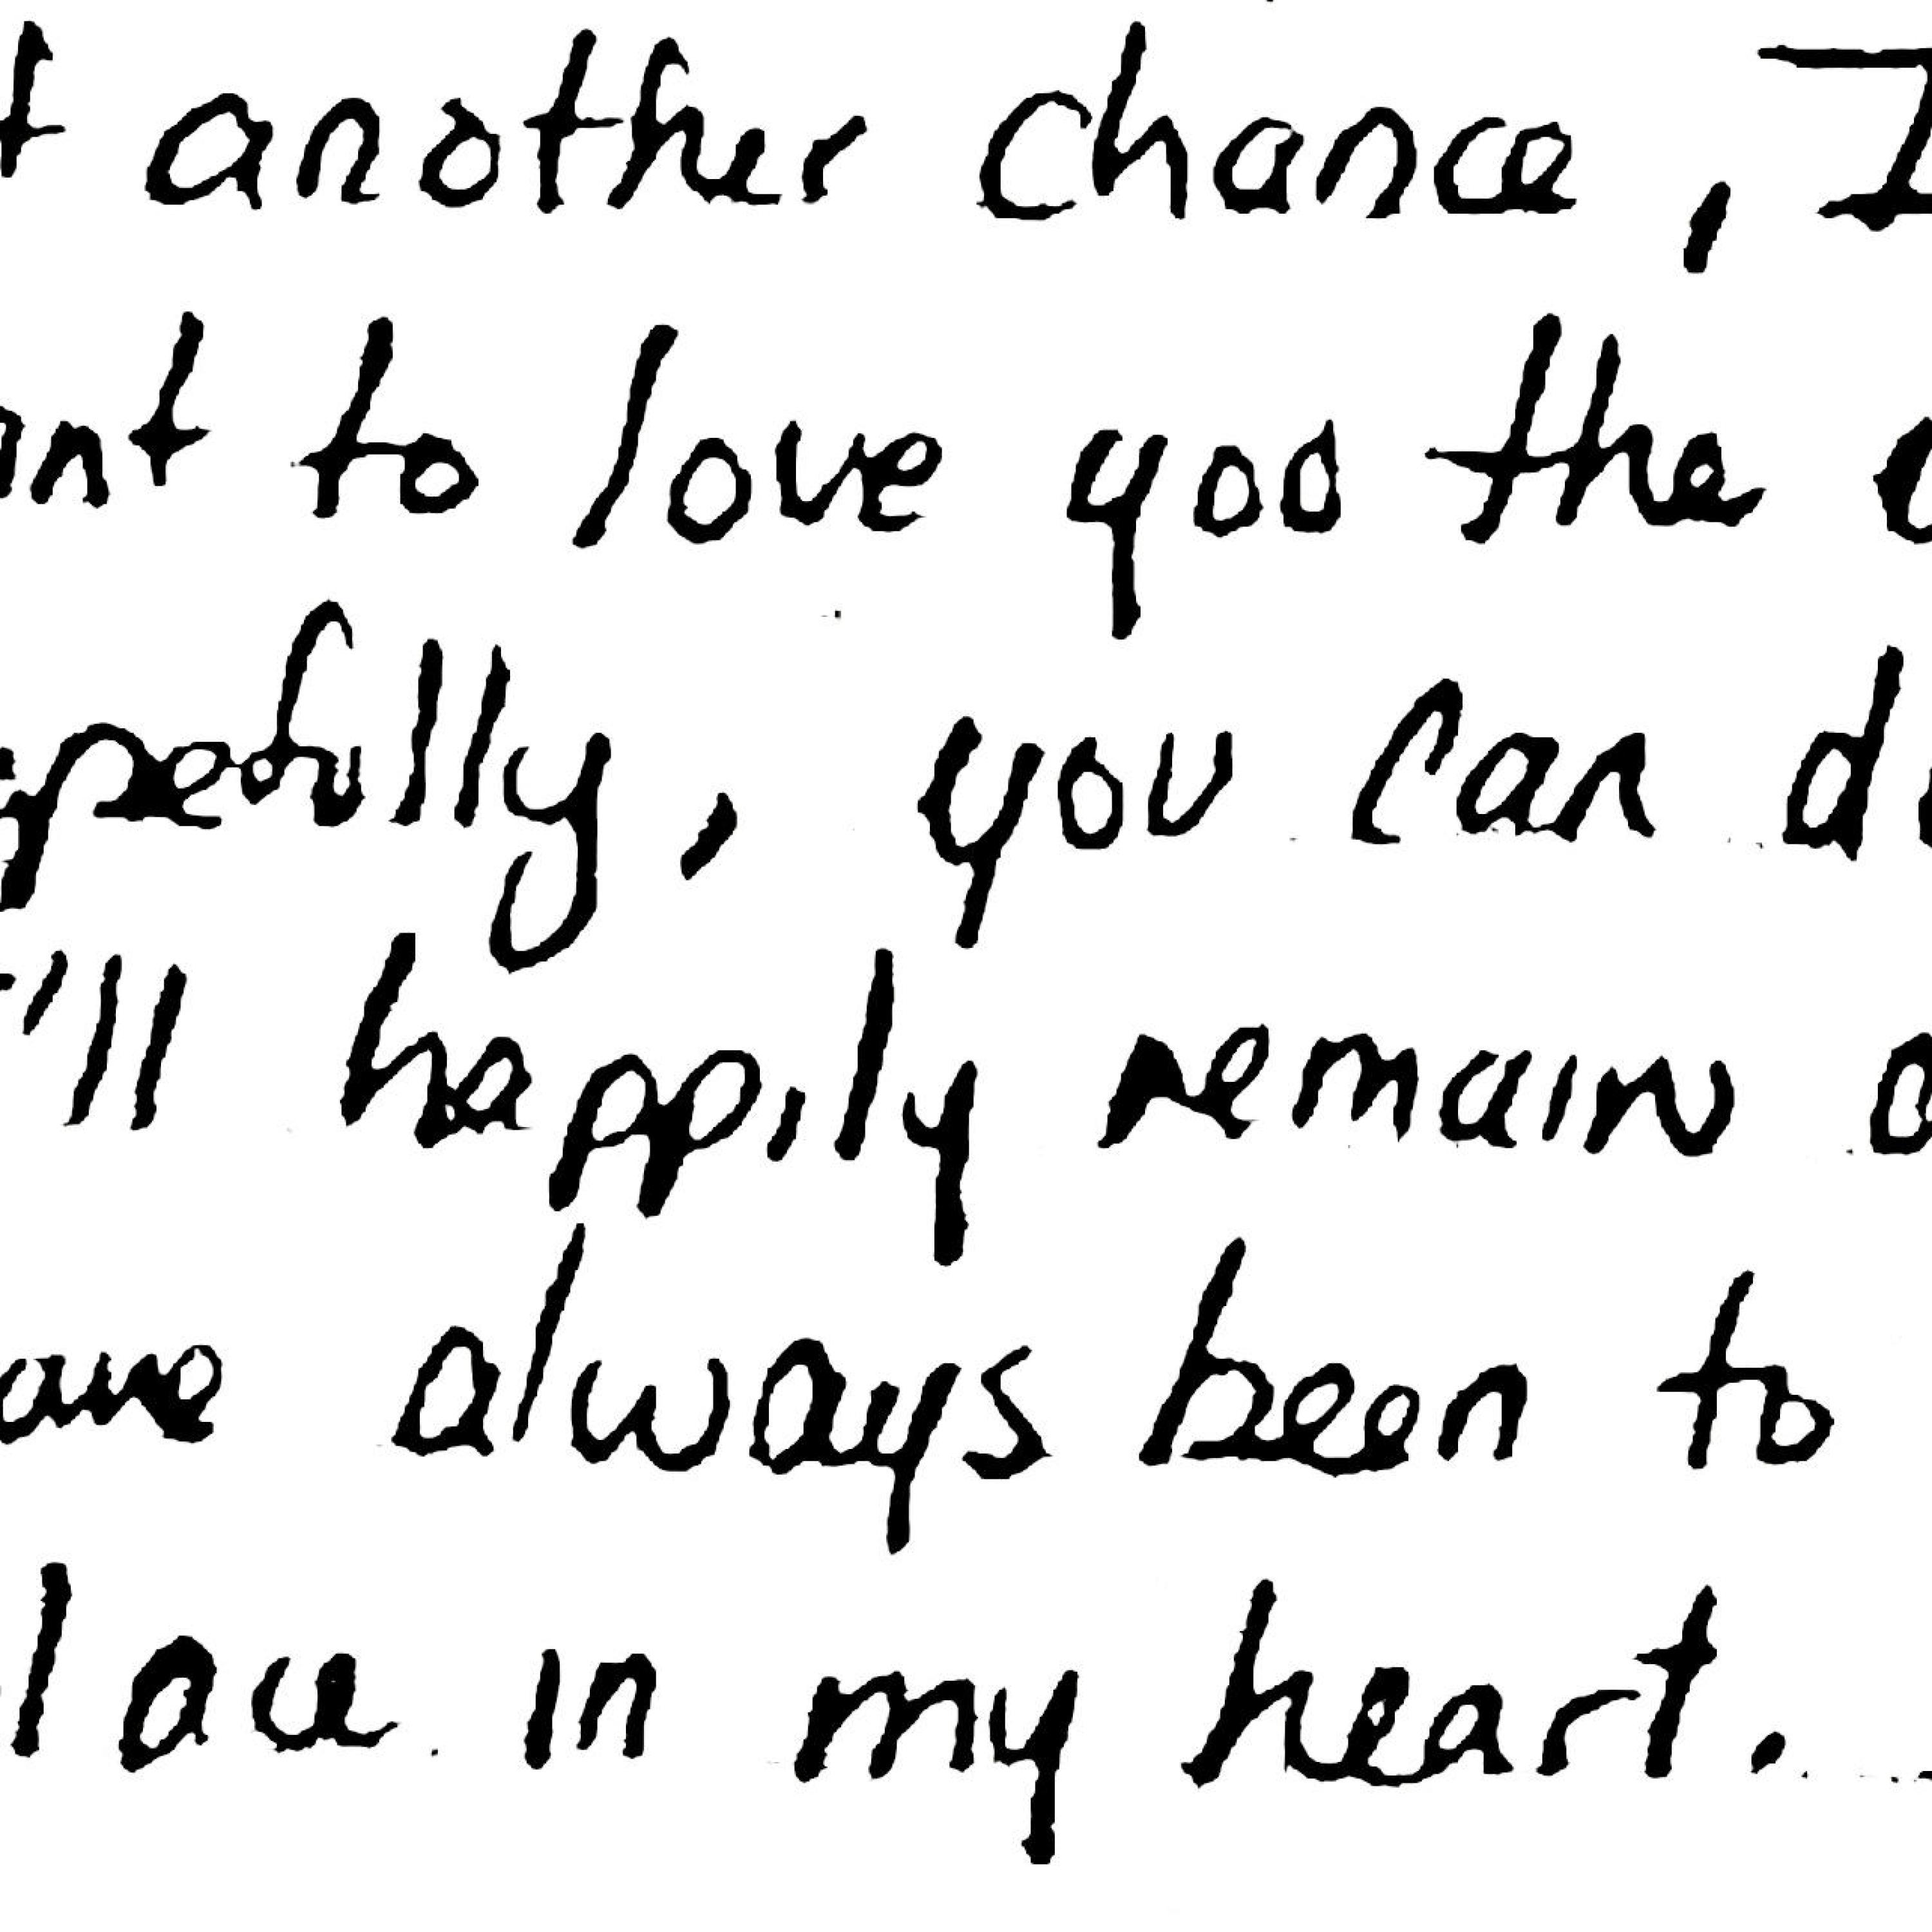 another chance, I
to love you the
hopefully, you can
I'll happily remain
have always been to
place in my heart.